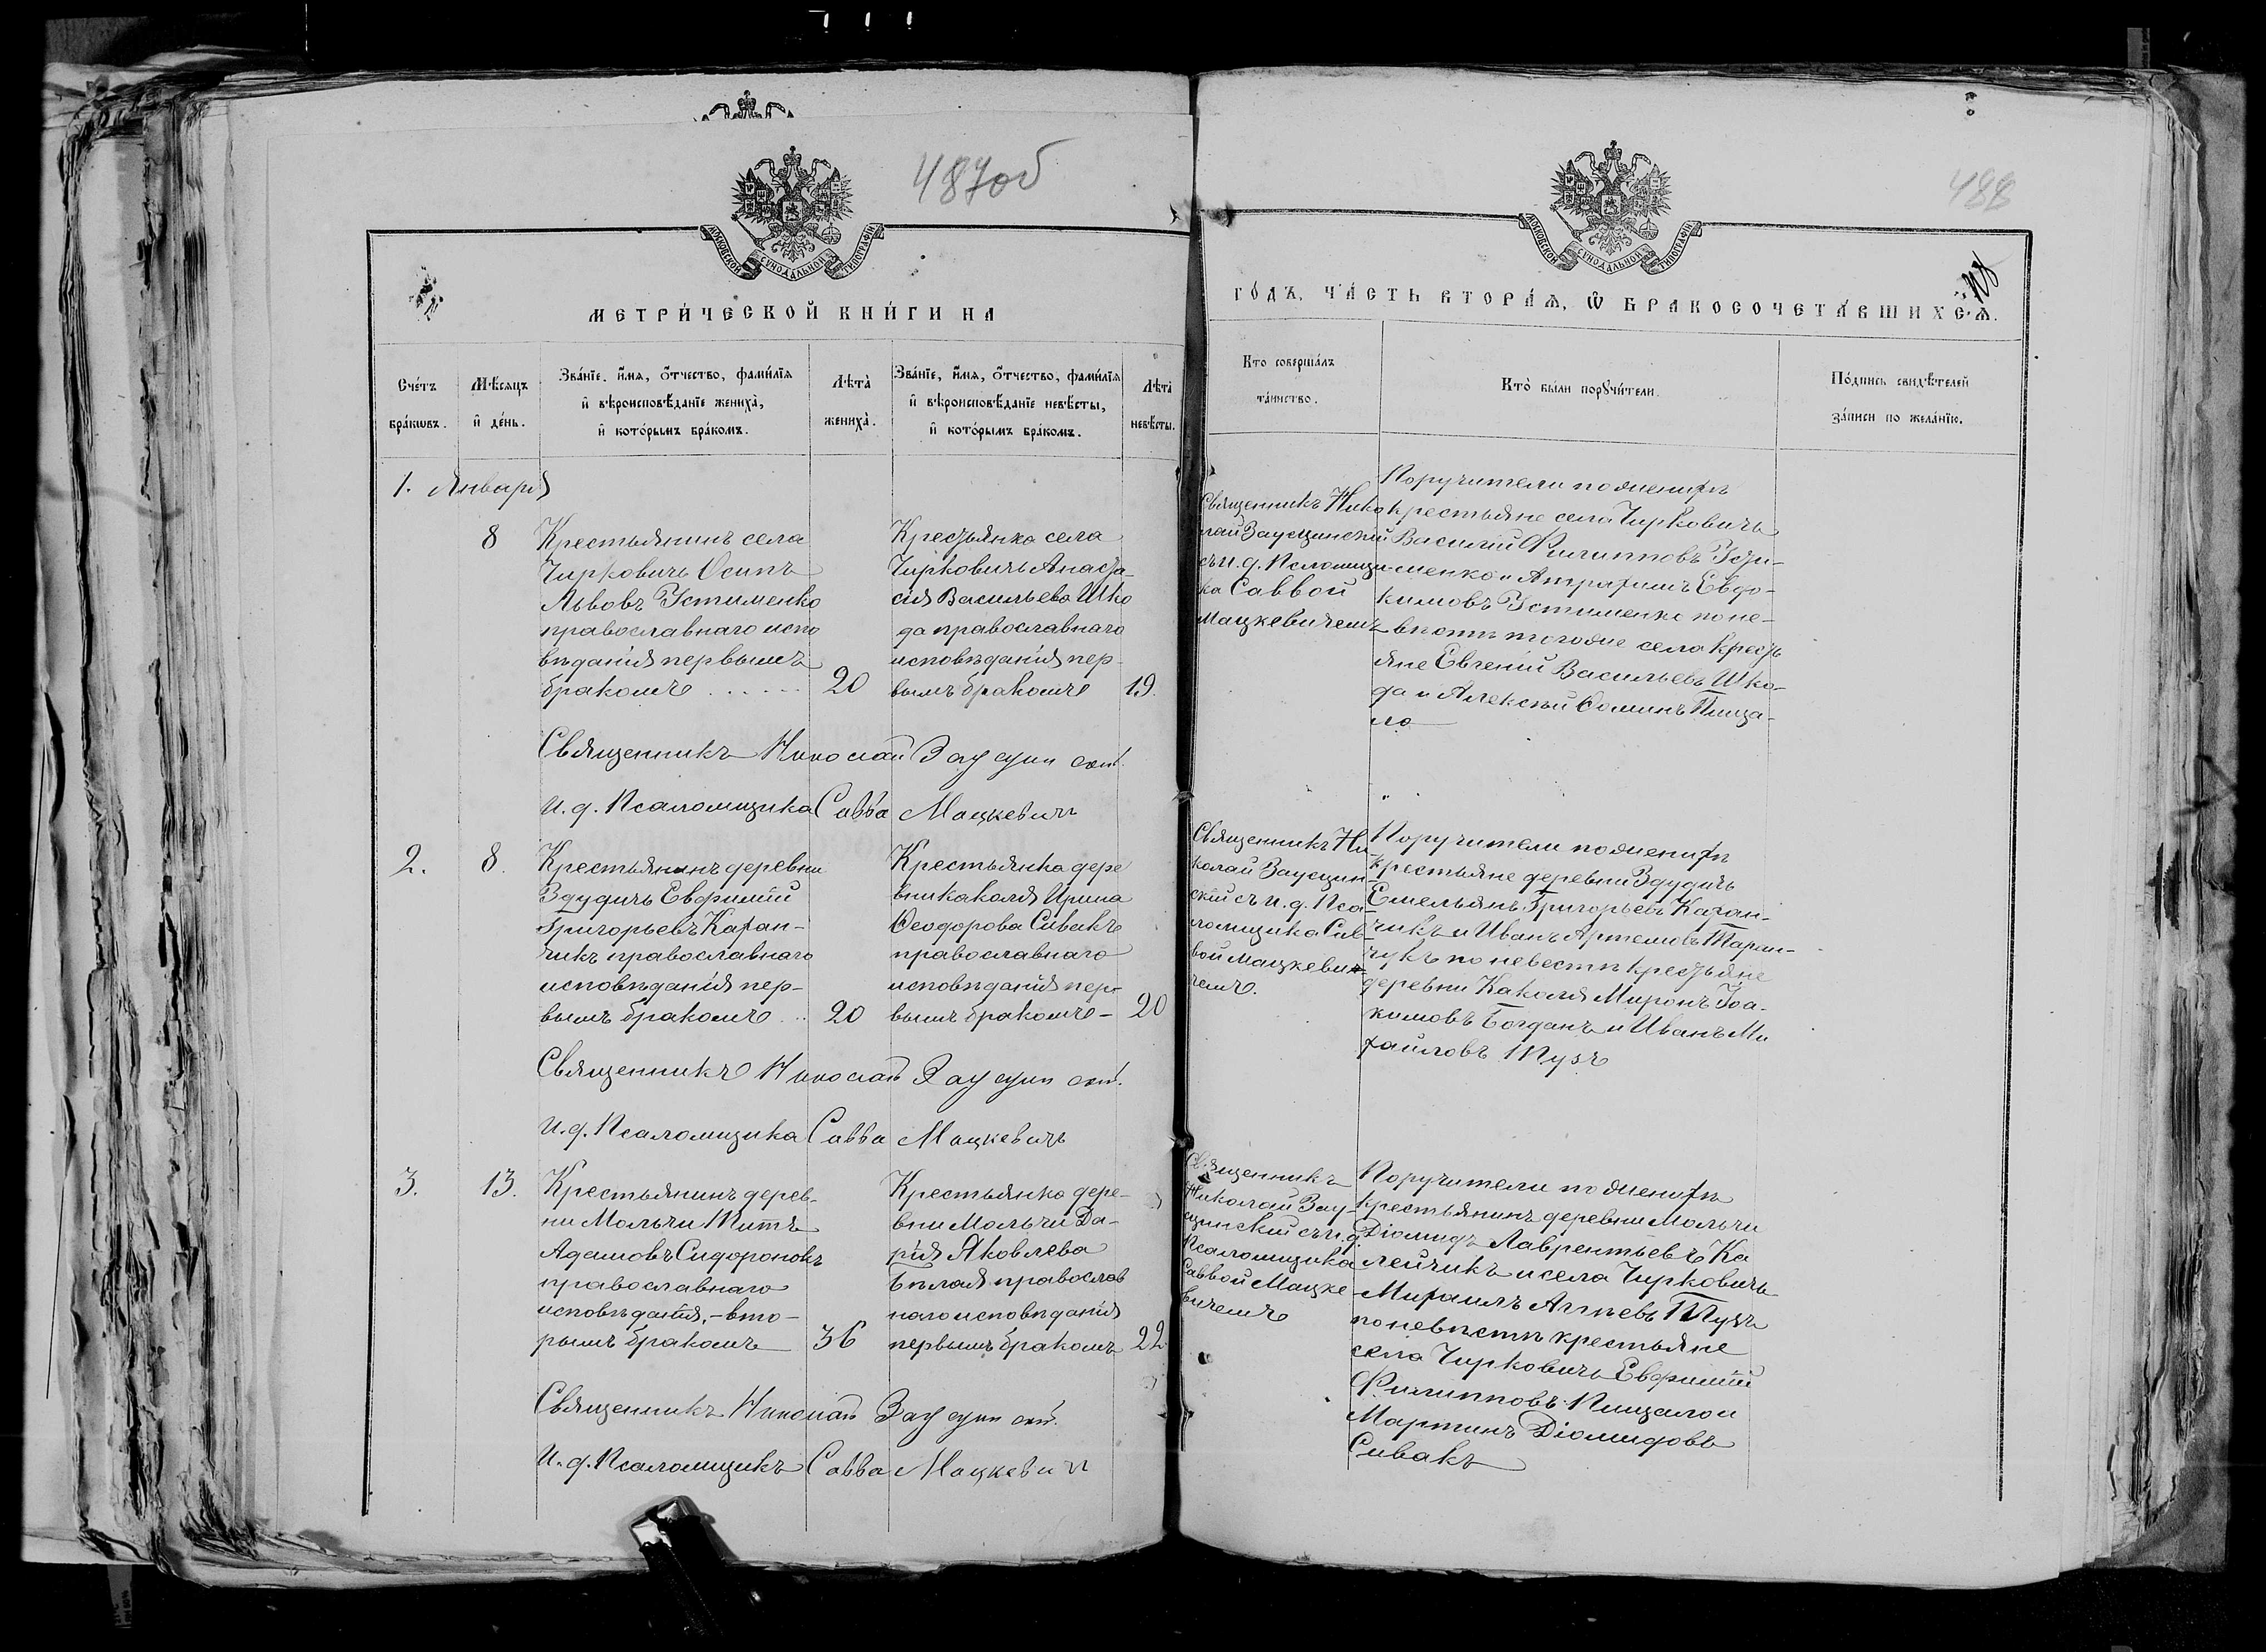 487об
МОСКОВСКОЙ СУНОДАЛЬНОЙ ТИПОГРАФІИ
МЕТРИ́ЧЕСКОЙ КНИ́ГИ НА
Сче́тъ бра́ковъ.
Мѣ́сяцъ и҆ де́нь.
Зва́нїе, и҆́мя, ѻ҆́тчество, фами́лїя и҆ вѣроисповѣ́данїе жениха̀, и҆ кото́рымъ бра́комъ.
Лѣта̀ жениха̀.
Зва́нїе, и҆́мя, ѻ҆́тчество, фами́лїя и҆ вѣроисповѣ́данїе невѣ́сты, и҆ кото́рымъ бра́комъ.
Лѣта̀ невѣ́сты.
1. Января
8
Крестьянинъ села
Чирковичъ Осипъ
Львовъ Устименко
православнаго испо
вѣданія первымъ
бракомъ . . . . . . 20
Крестьянка села
Чирковичъ Анаста-
сія Васильева Шко
да православнаго
исповѣданія пер-
вымъ бракомъ 19.
Священникъ Николай Заусцинскій.
И. д. Псаломщика Савва Мацкевичъ
2. 8.
Крестьянинъ деревни
Здудичъ Евфимій
Григорьевъ Кахан-
чикъ православнаго
исповѣданія пер-
вымъ бракомъ . . 20
Крестьянка дере
вни Каколя Ирина
Ѳеодорова Сивакъ
православнаго
исповѣданія пер-
вымъ бракомъ - 20
Священникъ Николай Заусцинскій.
И. д. Псаломщика Савва Мацкевичъ
3. 13.
Крестьянинъ дерев-
ни Мольчи Титъ
Адамовъ Сидоровъ
православнаго
исповѣданія, - вто-
рымъ бракомъ 36
Крестьянка дере-
вни Мольчи Да-
рія Яковлева
Бѣлая православ
наго исповѣданія
первымъ бракомъ 22
Священникъ Николай Заусцинскій.
И. д. Псаломщикъ Савва Мацкевичъ
488
МОСКОВСКОЙ СУНОДАЛЬНОЙ ТИПОГРАФІИ
ГО́ДЪ, ЧА́СТЬ ВТОРА́Я, Ѡ҆ БРАКОСОЧЕТА́ВШИХСЯ.
Кто соверша́лъ та́инство.
Кто̀ бы́ли порꙋчи́тели.
По́дпись свидѣ́телей за́писи по жела́нїю.
Священникъ Нико
лай Заусцинскій
съ и. д. Псаломщи-
ка Саввой
Мацкевичемъ
Поручители по женихѣ
крестьяне села Чирковичъ
Василій Филипповъ Усти-
менко и Анрахимъ Евдо-
кимовъ Устименко по не-
вѣстѣ тогоже села кресть
яне Евгеній Васильевъ Шко-
да и Алексѣй Ѳоминъ Пища-
ло
Священникъ Ни
колай Заусцин-
скій съ и. д. Пса-
ломщика Сав-
вой Мацкеви-
чемъ.
Поручители по женихѣ
крестьяне деревни Здудичъ
Емельянъ Григорьевъ Кахан-
чикъ и Иванъ Артемовъ Таран-
чукъ по невестѣ крестьяне
деревни Каколя Миронъ Іоа-
кимовъ Богданъ и Иванъ Ми
хайловъ Тузъ
Священникъ
Николай Зау-
сцинскій съ и. д.
Псаломщика
Саввой Мацке-
вичемъ
Поручители по женихѣ
крестьянинъ деревни Мольчи
Діомидъ Лаврентьевъ Ка
лейчикъ и села Чирковичъ
Михаилъ Агѣевъ Тузъ
по невѣстѣ крестьяне
села Чирковичъ Евфимій
Филипповъ Пищало и
Мартинъ Діомидовъ
Сивакъ